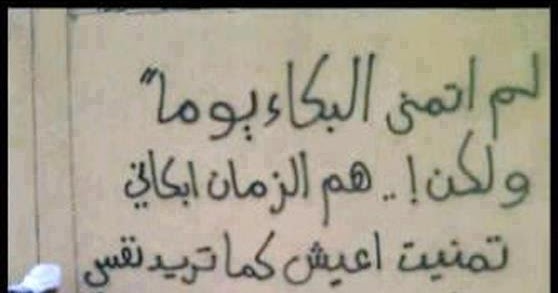 لم اتمنى البكاء يوماً
ولكن!.. هم الزمان ابكاني
تمنيت اعيش كما تريد نفسي